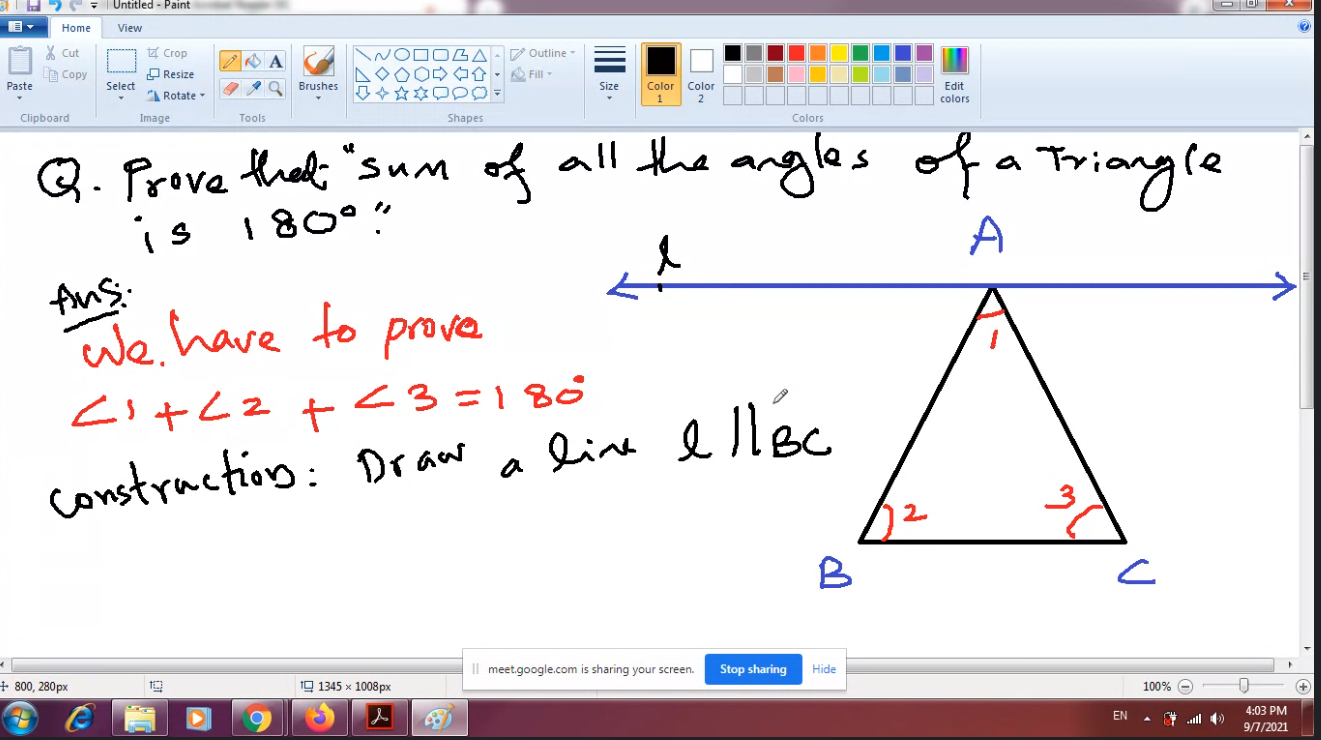 Untitled - Paint
Home View
Cut
Copy
Paste
Clipboard
Select
Crop
Resize
Rotate
Image
A
Tools
Brushes
Shapes
Outline
Fill
Size
Color 1
Color 2
Edit colors
Colors
Q. Prove that "sum of all the angles of a Triangle
is 180°"
Ans:
We have to prove
∠1 + ∠2 + ∠3 = 180°
construction: Draw a line l || BC
l
A
1
2
3
B
C
meet.google.com is sharing your screen. Stop sharing Hide
800, 280px
1345 × 1008px
100%
EN
4:03 PM
9/7/2021